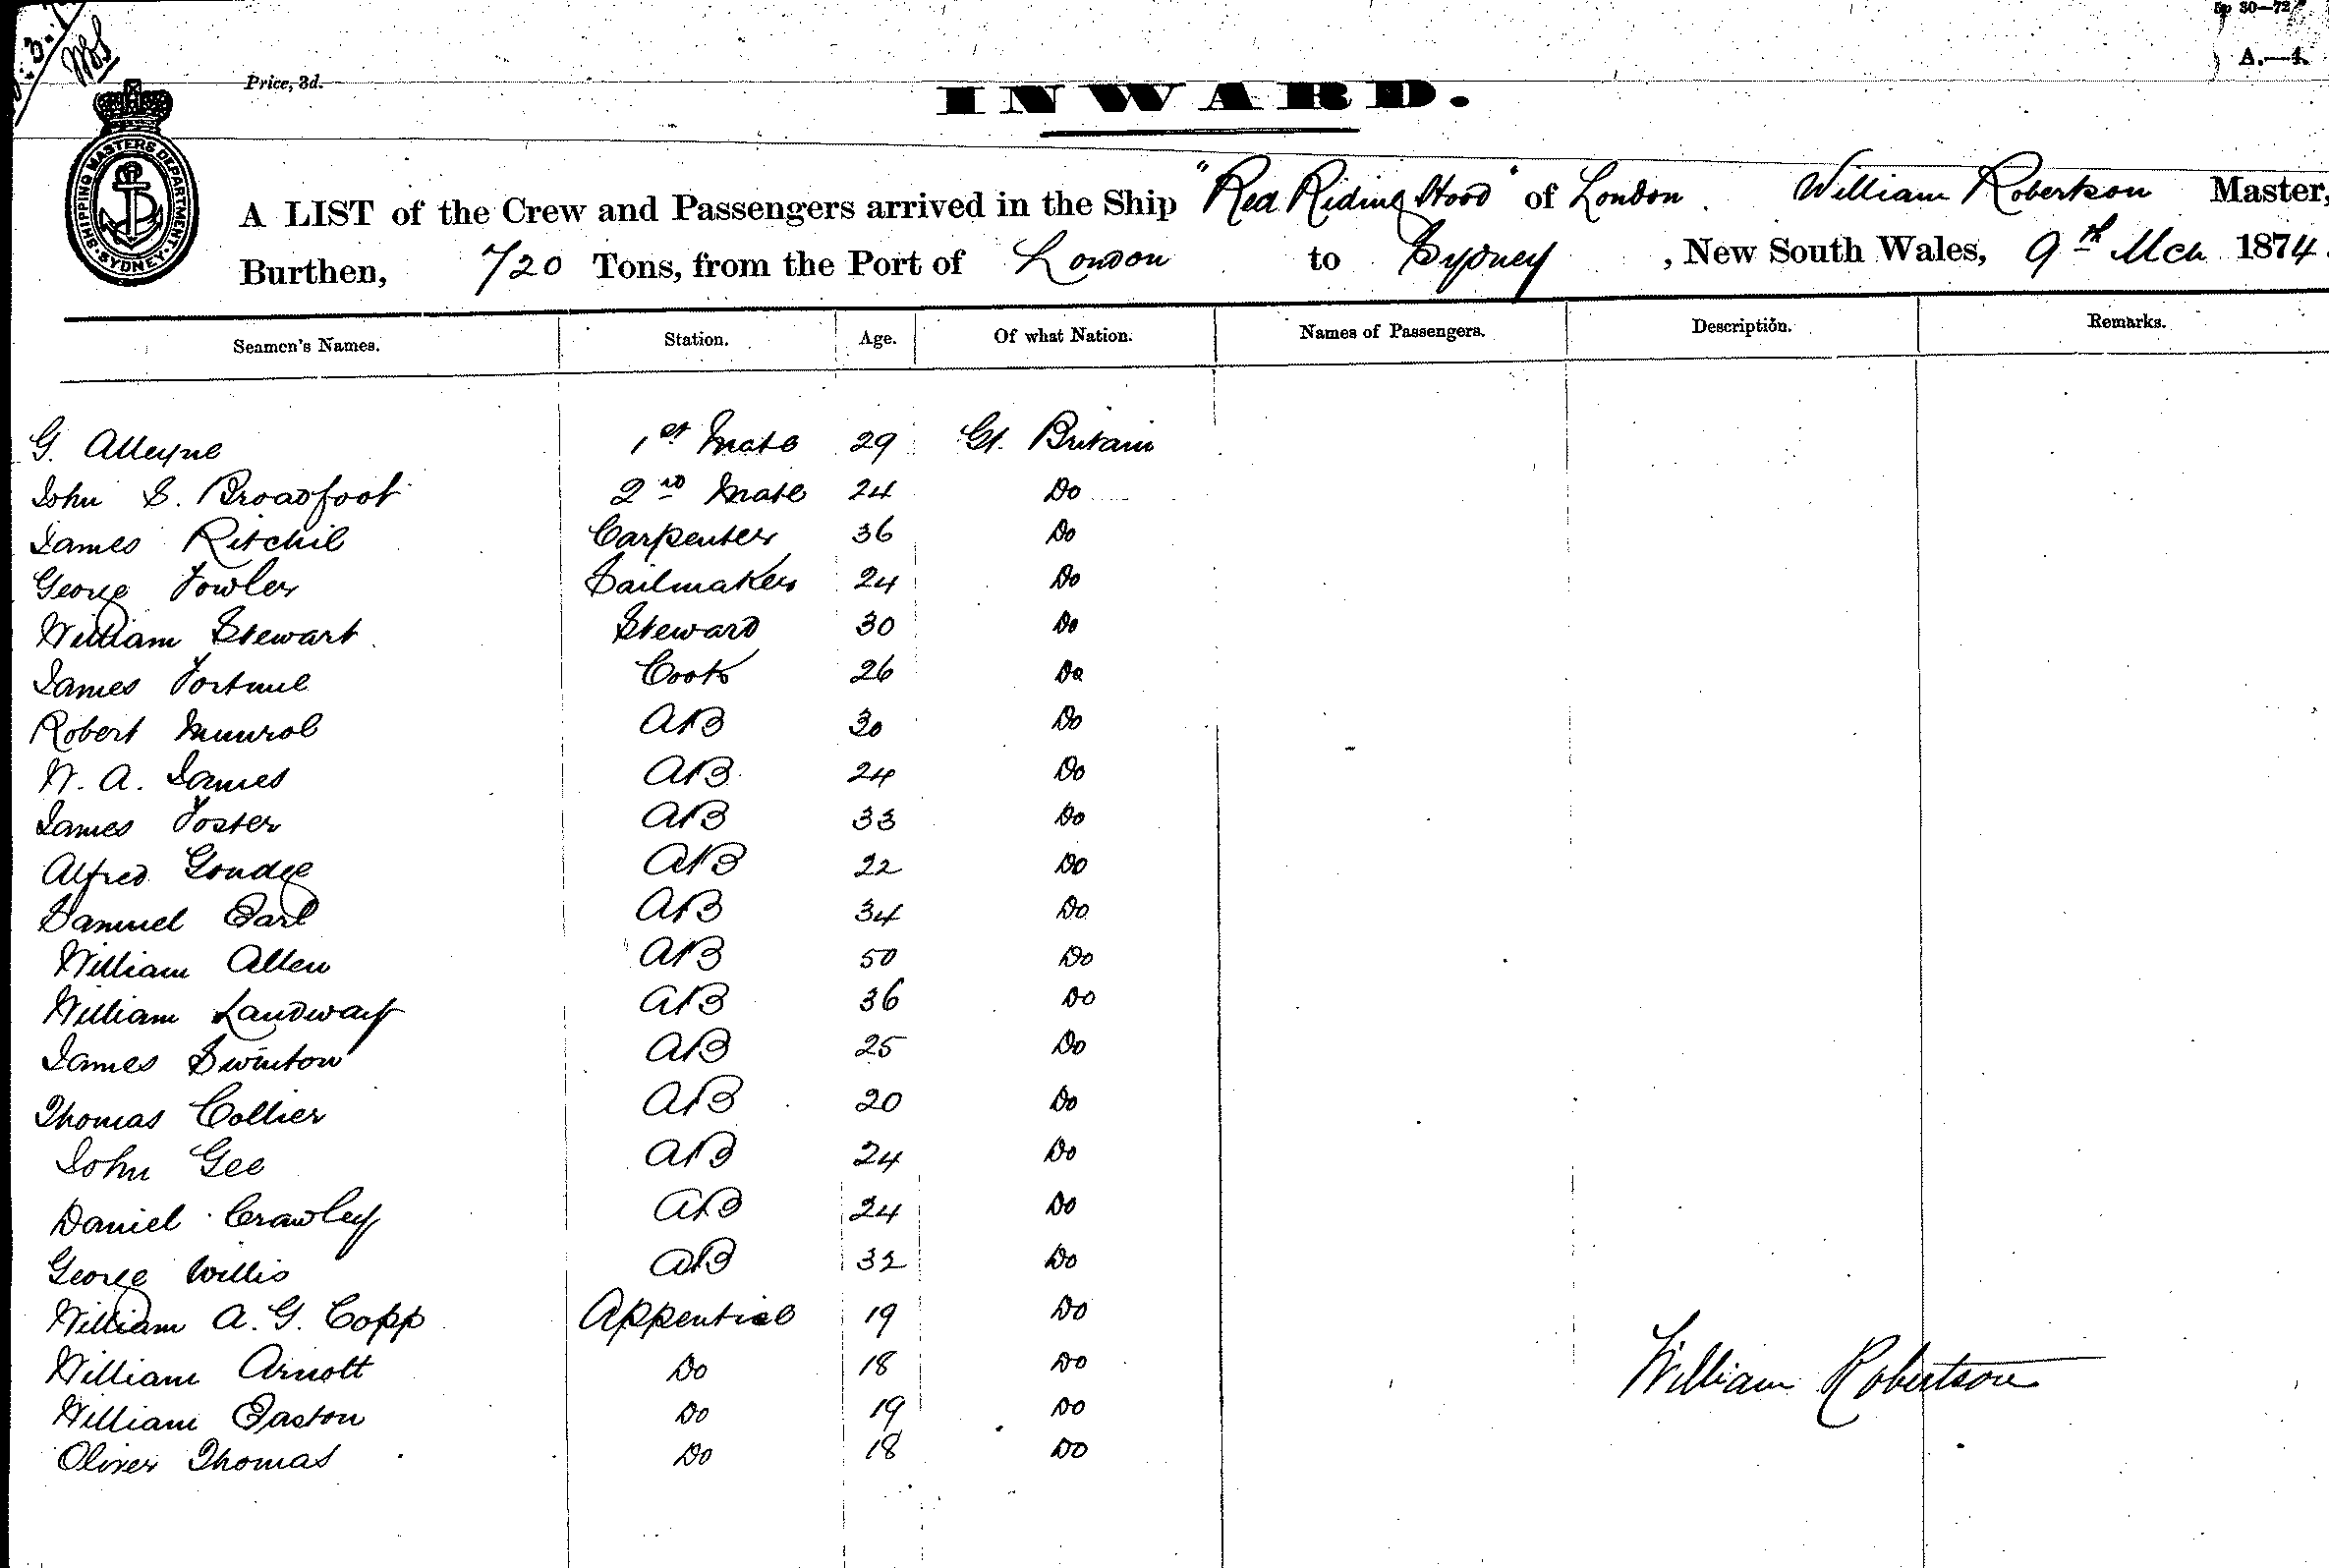 5p 30—72
A.—4.
Price, 3d.
INWARD.
SHIPPING MASTERS DEPARTMENT SYDNEY
A LIST of the Crew and Passengers arrived in the Ship "Red Riding Hood" of London. William Robertson Master,
Burthen, 720 Tons, from the Port of London to Sydney, New South Wales, 9th Mch 1874.
Seamen's Names. Station. Age. Of what Nation. Names of Passengers. Description. Remarks.
G. Alleyne 1st Mate 29 Gt. Britain
John S. Broadfoot 2nd Mate 24 Do
James Ritchie Carpenter 36 Do
George Fowler Sailmaker 24 Do
William Stewart Steward 30 Do
James Fortune Cook 26 Do
Robert Munroe AB 30 Do
W. A. James AB 24 Do
James Foster AB 33 Do
Alfred Goudge AB 22 Do
Samuel Earl AB 34 Do
William Allen AB 50 Do
William AB 36 Do
James Swinton AB 25 Do
Thomas Collier AB 20 Do
John Gee AB 24 Do
Daniel Crawley AB 24 Do
George Willis AB 32 Do
William A. G. Copp Appentice 19 Do
William Arnott Do 18 Do
William Easton Do 19 Do
Oliver Thomas Do 18 Do
William Robertson